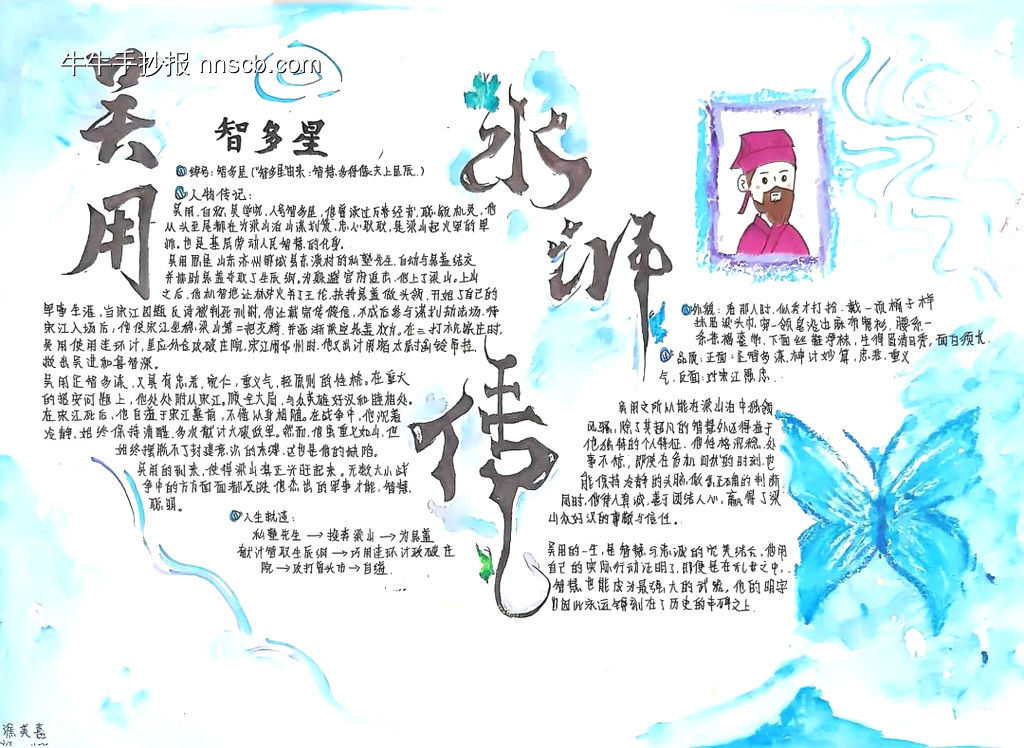 牛牛手抄报 nnscb.com
吴用
智多星
水浒传
绰号：智多星（"智多星"由来：智慧多得像天上星辰..）
人物传记：
吴用，自称吴学究，人号智多星，他曾读过万卷经书，聪敏机灵，他
从头至尾都在为梁山泊出谋划策，忠心耿耿，是梁山起义军的军
师。也是基层劳动人民智慧的化身。
吴用原是山东济州郓城县东溪村的私塾先生，自动与晁盖结交
并协助晁盖夺取了生辰纲，为躲避官府追击，他上了梁山。上山
之后，他机智把让林冲火并了王伦，扶持晁盖做头领，开始了自己的
军事生涯，当宋江因题反诗被判死刑时，他让戴宗传假信，不成后参与谋划劫法场，待
救出吴进和喜智深。
吴用足智多谋，又具有忠君，宽仁，重义气，轻原则的性格，在重大
的招安问题上，他处处附从宋江。顾全大局，与众英雄好汉和睦相处。
在宋江死后，他自缢于宋江墓前，不惜以身相随。在战争中，他沉着
冷静，始终保持清醒，多次献计大破敌军。然而，他虽重义如山，但
始终摆脱不了封建意识的束缚，这也是他的缺陷。
吴用的到来，使得梁山真正兴旺起来。无数大小战
争中的方方面面都反映他杰出的军事才能，智慧，
聪明。
人生轨迹：
私塾先生 → 投奔梁山 → 为晁盖
献计智取生辰纲 → 巧用连环计攻破庄
院 → 攻打曾头市 → 自缢
外貌：看那人时，似秀才打扮，戴一顶桶子样
抹眉梁头巾，穿一领皂沿边麻布宽衫，腰系一
条茶褐銮带，下面丝鞋净袜，生得眉清目秀，面白须长
品质：正面：足智多谋，神计妙算，忠君，重义
气，反面：对宋江愚忠
吴用之所以能在梁山泊中独领
风骚，除了其超凡的智慧外还得益于
他独特的个人特征，他性格沉稳，处
事不惊，即使在危机四伏的时刻，也
能保持冷静的头脑，做出正确的判断
同时，他待人真诚，善于团结人心，赢得了梁
山众好汉的尊敬与信任。
吴用的一生，是智慧与忠诚的完美结合，他用
自己的实际行动证明了，即便是在乱世之中，
智慧也能成为最强大的武器。他的名字
也因此永远镌刻在了历史的丰碑之上